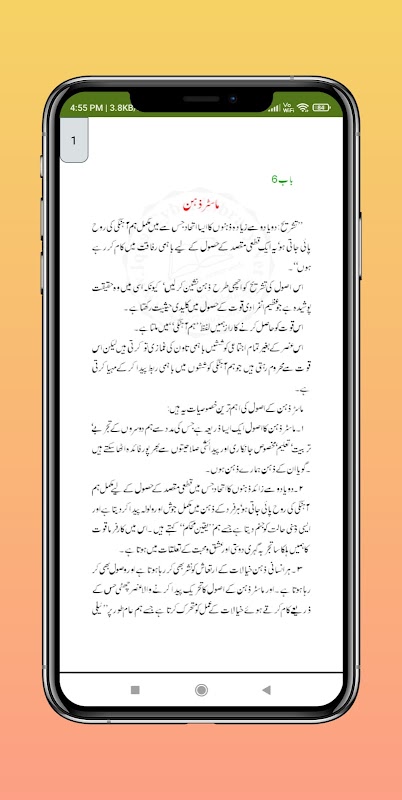 4:55 PM | 3.8KB/
Vo
WiFi
64
1
باب 6
ماسٹر ذہن
"تشریح: دو یا دو سے زیادہ ذہنوں کا ایسا اتحاد جس سے میں مکمل ہم آہنگی کی روح
پائی جاتی ہو' یہ ایک قطعی مقصد کے حصول کے لیے باہمی رفاقت میں کام کر رہے
ہوں"۔
اس اصول کی تشریح کو اچھی طرح ذہن نشین کر لیں' کیونکہ اسی میں وہ حقیقت
پوشیدہ ہے جو عظیم انفرادی قوت کے حصول میں کلیدی حیثیت رکھتا ہے۔
اس قوت کو حاصل کرنے کا راز ہمیں لفظ "ہم آہنگی" میں ملتا ہے۔
اس عنصر کے بغیر تمام اجتماعی کوششیں باہمی تعاون کی غمازی تو کرتی ہیں لیکن اس
قوت سے محروم رہتی ہیں جو ہم آہنگی کوششوں میں باہمی ربط پیدا کر کے مہیا کرتی
ہے۔
ماسٹر ذہن کے اصول کی اہم ترین خصوصیات یہ ہیں:
۱۔ ماسٹر ذہن کا اصول ایک ایسا ذریعہ ہے جس کی مدد سے ہم دوسروں کے تجربے'
تربیت' تعلیم' مخصوص جانکاری اور پیدائشی صلاحیتوں سے بھرپور فائدہ اٹھا سکتے ہیں
۔ گویا ان کے ذہن ہمارے ذہن ہوں۔
۲۔ دو یا دو سے زائد ذہنوں کا اتحاد جس میں قطعی مقصد کے حصول کے لیے مکمل ہم
آہنگی کی روح پائی جاتی ہو' ہر فرد کے ذہن میں مکمل جوش اور ولولہ پیدا کر دیتا ہے اور
ایسی ذہنی حالت کو جنم دیتا ہے جسے ہم "یقین محکم" کہتے ہیں۔ اس میں کارفرما قوت
کا ہمیں ہلکا سا تجربہ گہری دوستی اور عشق و محبت کے تعلقات میں ہوتا ہے۔
۳۔ ہر انسانی ذہن خیالات کے ارتعاش کو نشر بھی کر رہا ہوتا ہے اور وصول بھی کر
رہا ہوتا ہے۔ اور ماسٹر ذہن کے اصول کا تحریک پیدا کرنے والا عنصر چھٹی حس کے
ذریعے کام کرتے ہوئے خیالات کے عمل کو متحرک کرتا ہے جسے ہم عام طور پر "ٹیلی